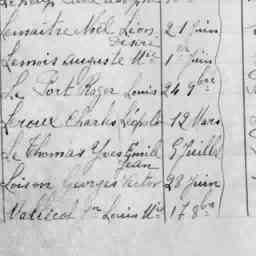 Lemaitre Noël Léon 21 Juin
Désiré
Lemois Auguste Mie 1er Juin
Le Port Roger Louis 24 9bre
Leroux Charles Léopold 12 Mars
Le Thomas Yves Emile 5 Juillet
Jean
Loison Georges Victor 28 Juin
Louis Mie 17 8bre